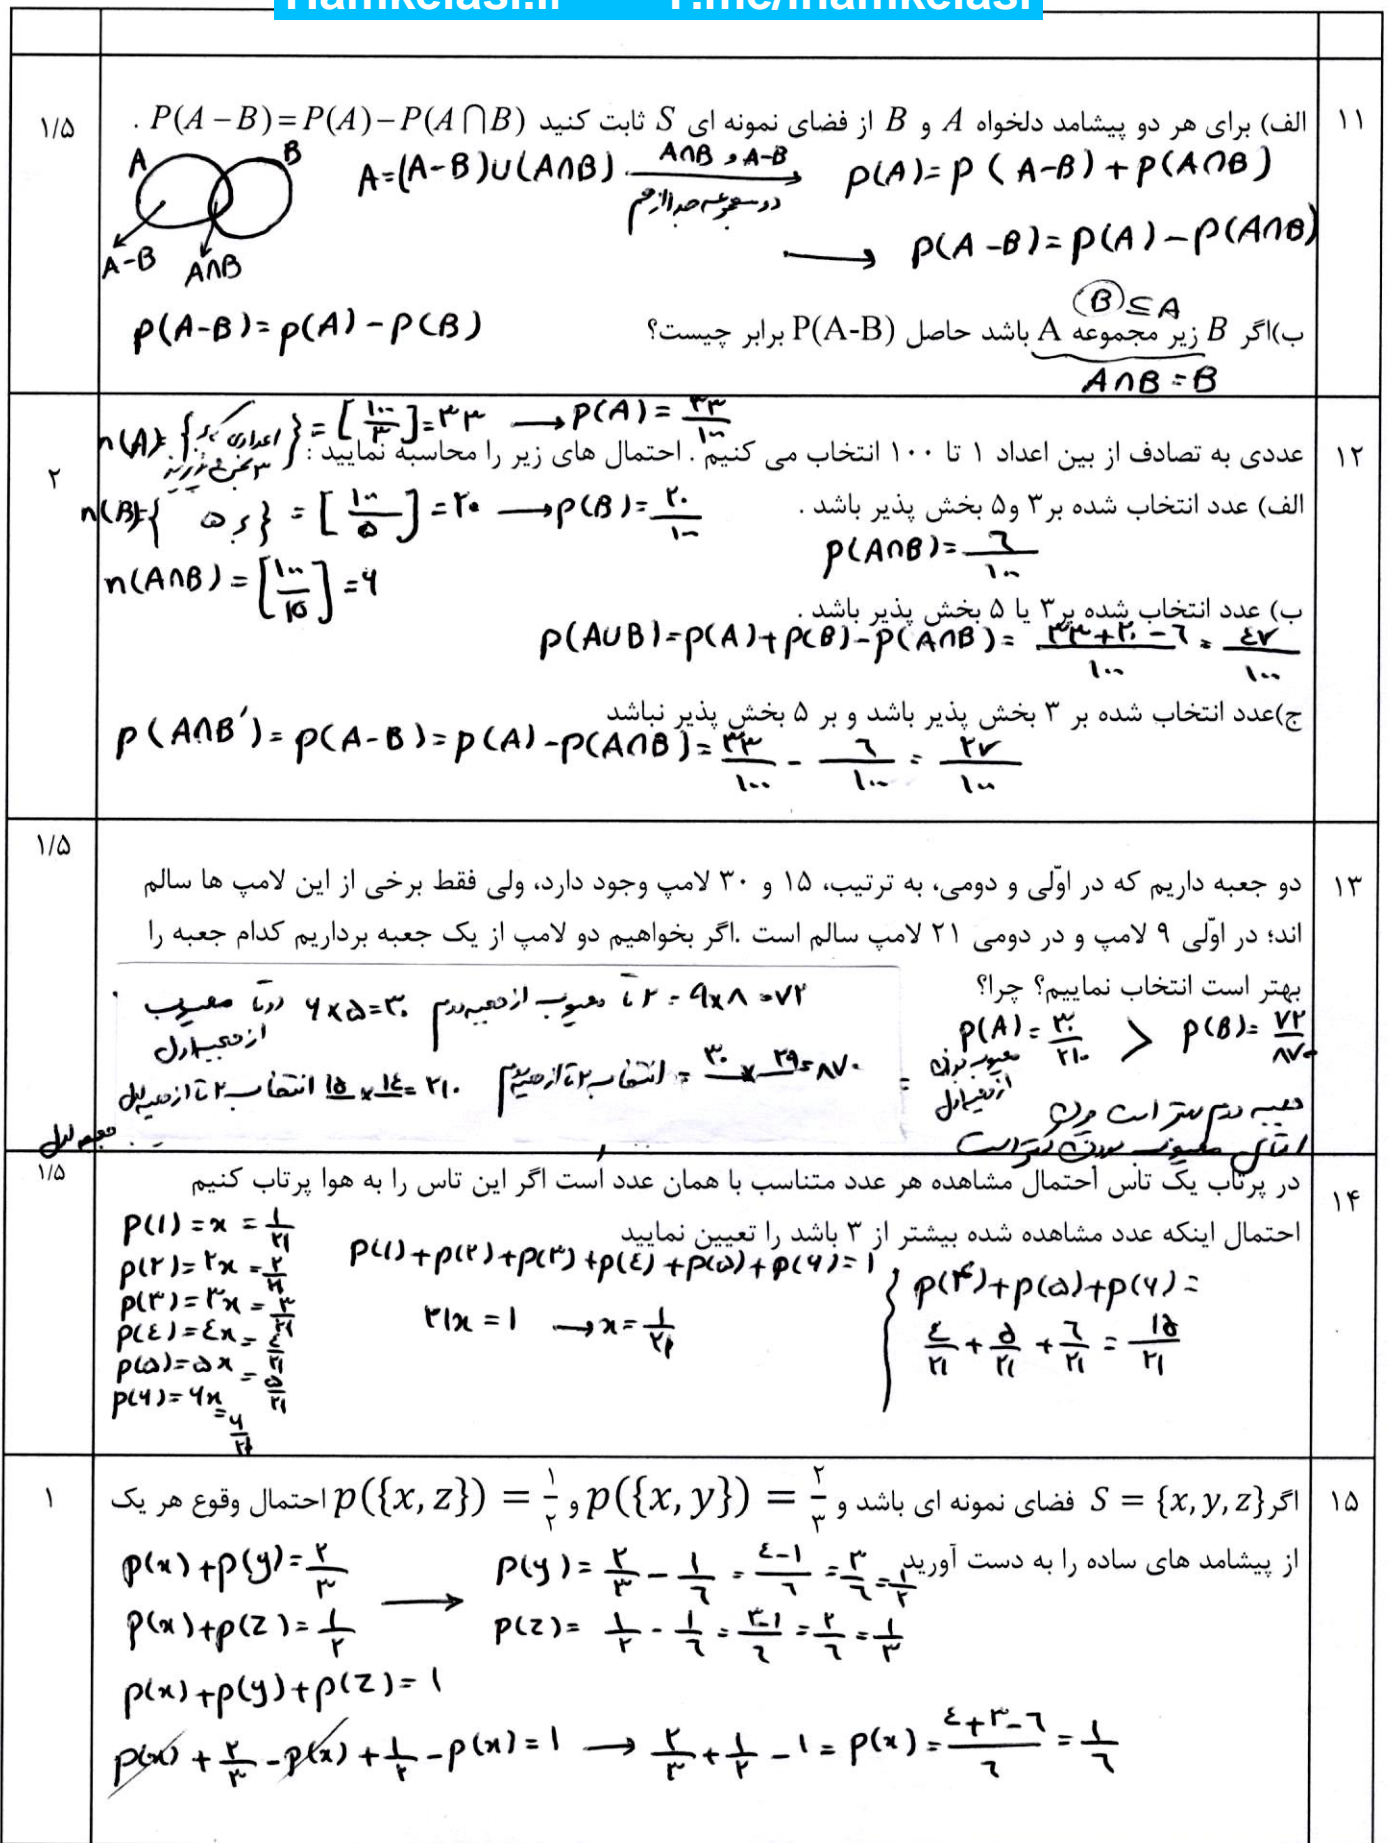 Hamkelasi.ir T.me/ihamkelasi
۱۱
الف) برای هر دو پیشامد دلخواه A و B از فضای نمونه ای S ثابت کنید P(A−B)=P(A)−P(A∩B) .
۱/۵
A B
A=(A-B)∪(A∩B) A∩B و A-B دو مجموعه جدا از هم → p(A)=p(A-B)+p(A∩B)
→ p(A-B)=p(A)-p(A∩B)
A-B A∩B
B⊆A
ب)اگر B زیر مجموعه A باشد حاصل P(A-B) برابر چیست؟
p(A-B)=p(A)-p(B)
A∩B=B
n(A)={اعدادی که بر ۳ بخش پذیرند}=[۱۰۰/۳]=۳۳ → p(A)=۳۳/۱۰۰
۱۲
عددی به تصادف از بین اعداد ۱ تا ۱۰۰ انتخاب می کنیم . احتمال های زیر را محاسبه نمایید :
۲
الف) عدد انتخاب شده بر۳ و۵ بخش پذیر باشد .
n(B)={بر ۵}=[۱۰۰/۵]=۲۰ → p(B)=۲۰/۱۰۰
p(A∩B)=۶/۱۰۰
n(A∩B)=[۱۰۰/۱۵]=۶
ب) عدد انتخاب شده بر۳ یا ۵ بخش پذیر باشد .
p(A∪B)=p(A)+p(B)-p(A∩B)=۳۳+۲۰-۶/۱۰۰=۴۷/۱۰۰
ج)عدد انتخاب شده بر ۳ بخش پذیر باشد و بر ۵ بخش پذیر نباشد
p(A∩B')=p(A-B)=p(A)-p(A∩B)=۳۳/۱۰۰-۶/۱۰۰=۲۷/۱۰۰
۱/۵
۱۳
دو جعبه داریم که در اوّلی و دومی، به ترتیب، ۱۵ و ۳۰ لامپ وجود دارد، ولی فقط برخی از این لامپ ها سالم
اند؛ در اوّلی ۹ لامپ و در دومی ۲۱ لامپ سالم است .اگر بخواهیم دو لامپ از یک جعبه برداریم کدام جعبه را
بهتر است انتخاب نماییم؟ چرا؟
۲ تا معیوب از جعبه دوم = ۹×۸=۷۲
۶×۵=۳۰ دوتا معیوب از جعبه اول
p(A)=۳۰/۲۱۰ > p(B)=۷۲/۸۷۰
معیوب بودن از جعبه اول
انتخاب ۲ تا از جعبه دوم = ۳۰×۲۹=۸۷۰
انتخاب ۲ تا از جعبه اول ۱۵×۱۴=۲۱۰
جعبه دوم بهتر است چون
احتمال معیوب بودن کمتر است
جعبه اول
۱/۵
۱۴
در پرتاب یک تاس احتمال مشاهده هر عدد متناسب با همان عدد است اگر این تاس را به هوا پرتاب کنیم
احتمال اینکه عدد مشاهده شده بیشتر از ۳ باشد را تعیین نمایید
p(۱)=x=۱/۲۱
p(۲)=۲x=۲/۲۱
p(۳)=۳x=۳/۲۱
p(۴)=۴x=۴/۲۱
p(۵)=۵x=۵/۲۱
p(۶)=۶x=۶/۲۱
p(۱)+p(۲)+p(۳)+p(۴)+p(۵)+p(۶)=۱
۲۱x=۱ → x=۱/۲۱
p(۴)+p(۵)+p(۶)=
۴/۲۱+۵/۲۱+۶/۲۱=۱۵/۲۱
۱
۱۵
اگر S = {x, y, z} فضای نمونه ای باشد و p({x, y}) = ۲/۳ و p({x, z}) = ۱/۲ احتمال وقوع هر یک
از پیشامد های ساده را به دست آورید
p(x)+p(y)=۲/۳ → p(y)=۲/۳-۱/۶=۴-۱/۶=۳/۶=۱/۲
p(x)+p(z)=۱/۲ p(z)=۱/۲-۱/۶=۳-۱/۶=۲/۶=۱/۳
p(x)+p(y)+p(z)=۱
p(x)+۲/۳-p(x)+۱/۲-p(x)=۱ → ۲/۳+۱/۲-۱=p(x)=۴+۳-۶/۶=۱/۶